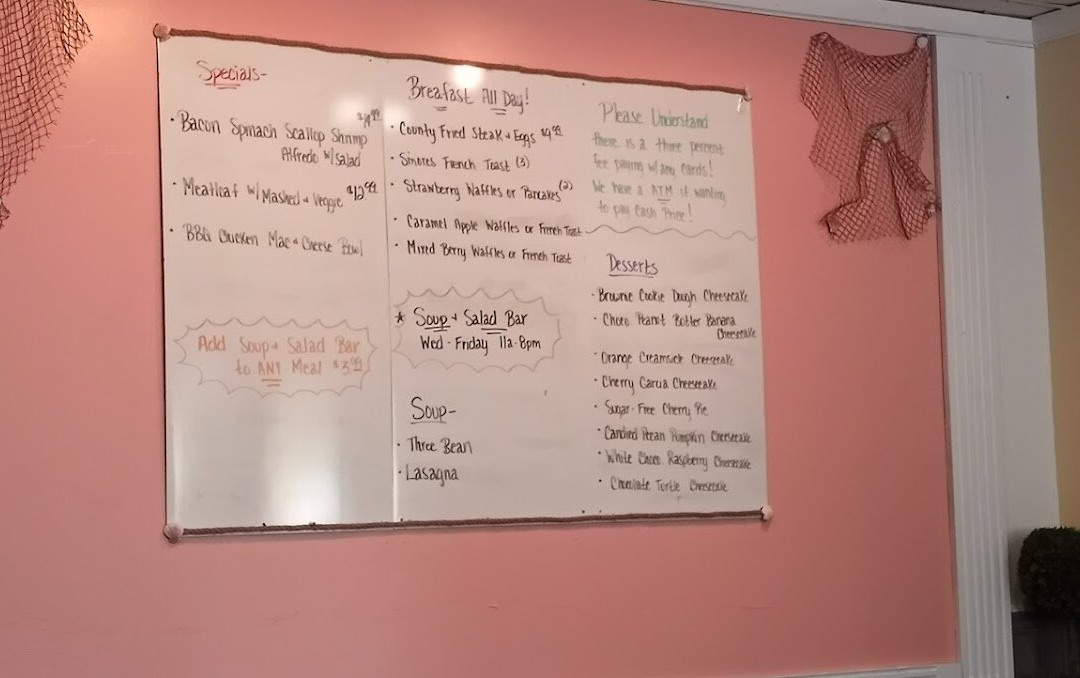 Specials-
• Bacon Spinach Scallop Shrimp
Alfredo w/ Salad
• Meatloaf w/ Mashed + Veggie $12.99
• BBQ Chicken Mac + Cheese Bowl
Add Soup + Salad Bar
to ANY Meal $3.99
Breafast All Day!
• County Fried Steak + Eggs $9.99
• S'mores French Toast (3)
• Strawberry Waffles or Pancakes (2)
• Caramel Apple Waffles or French Toast
• Mixed Berry Waffles or French Toast
* Soup + Salad Bar
Wed - Friday 11a-8pm
Soup-
• Three Bean
• Lasagna
Please Understand
there is a three percent
fee paying w/ any cards!
We have a ATM if wanting
to pay Cash Price!
Desserts
• Brownie Cookie Dough Cheesecake
• Choco Peanut Butter Banana
Cheesecake
• Orange Creamsicle Cheesecake
• Cherry Garcia Cheesecake
• Sugar-Free Cherry Pie
• Candied Pecan Pumpkin Cheesecake
• White Choco Raspberry Cheesecake
• Chocolate Turtle Cheesecake